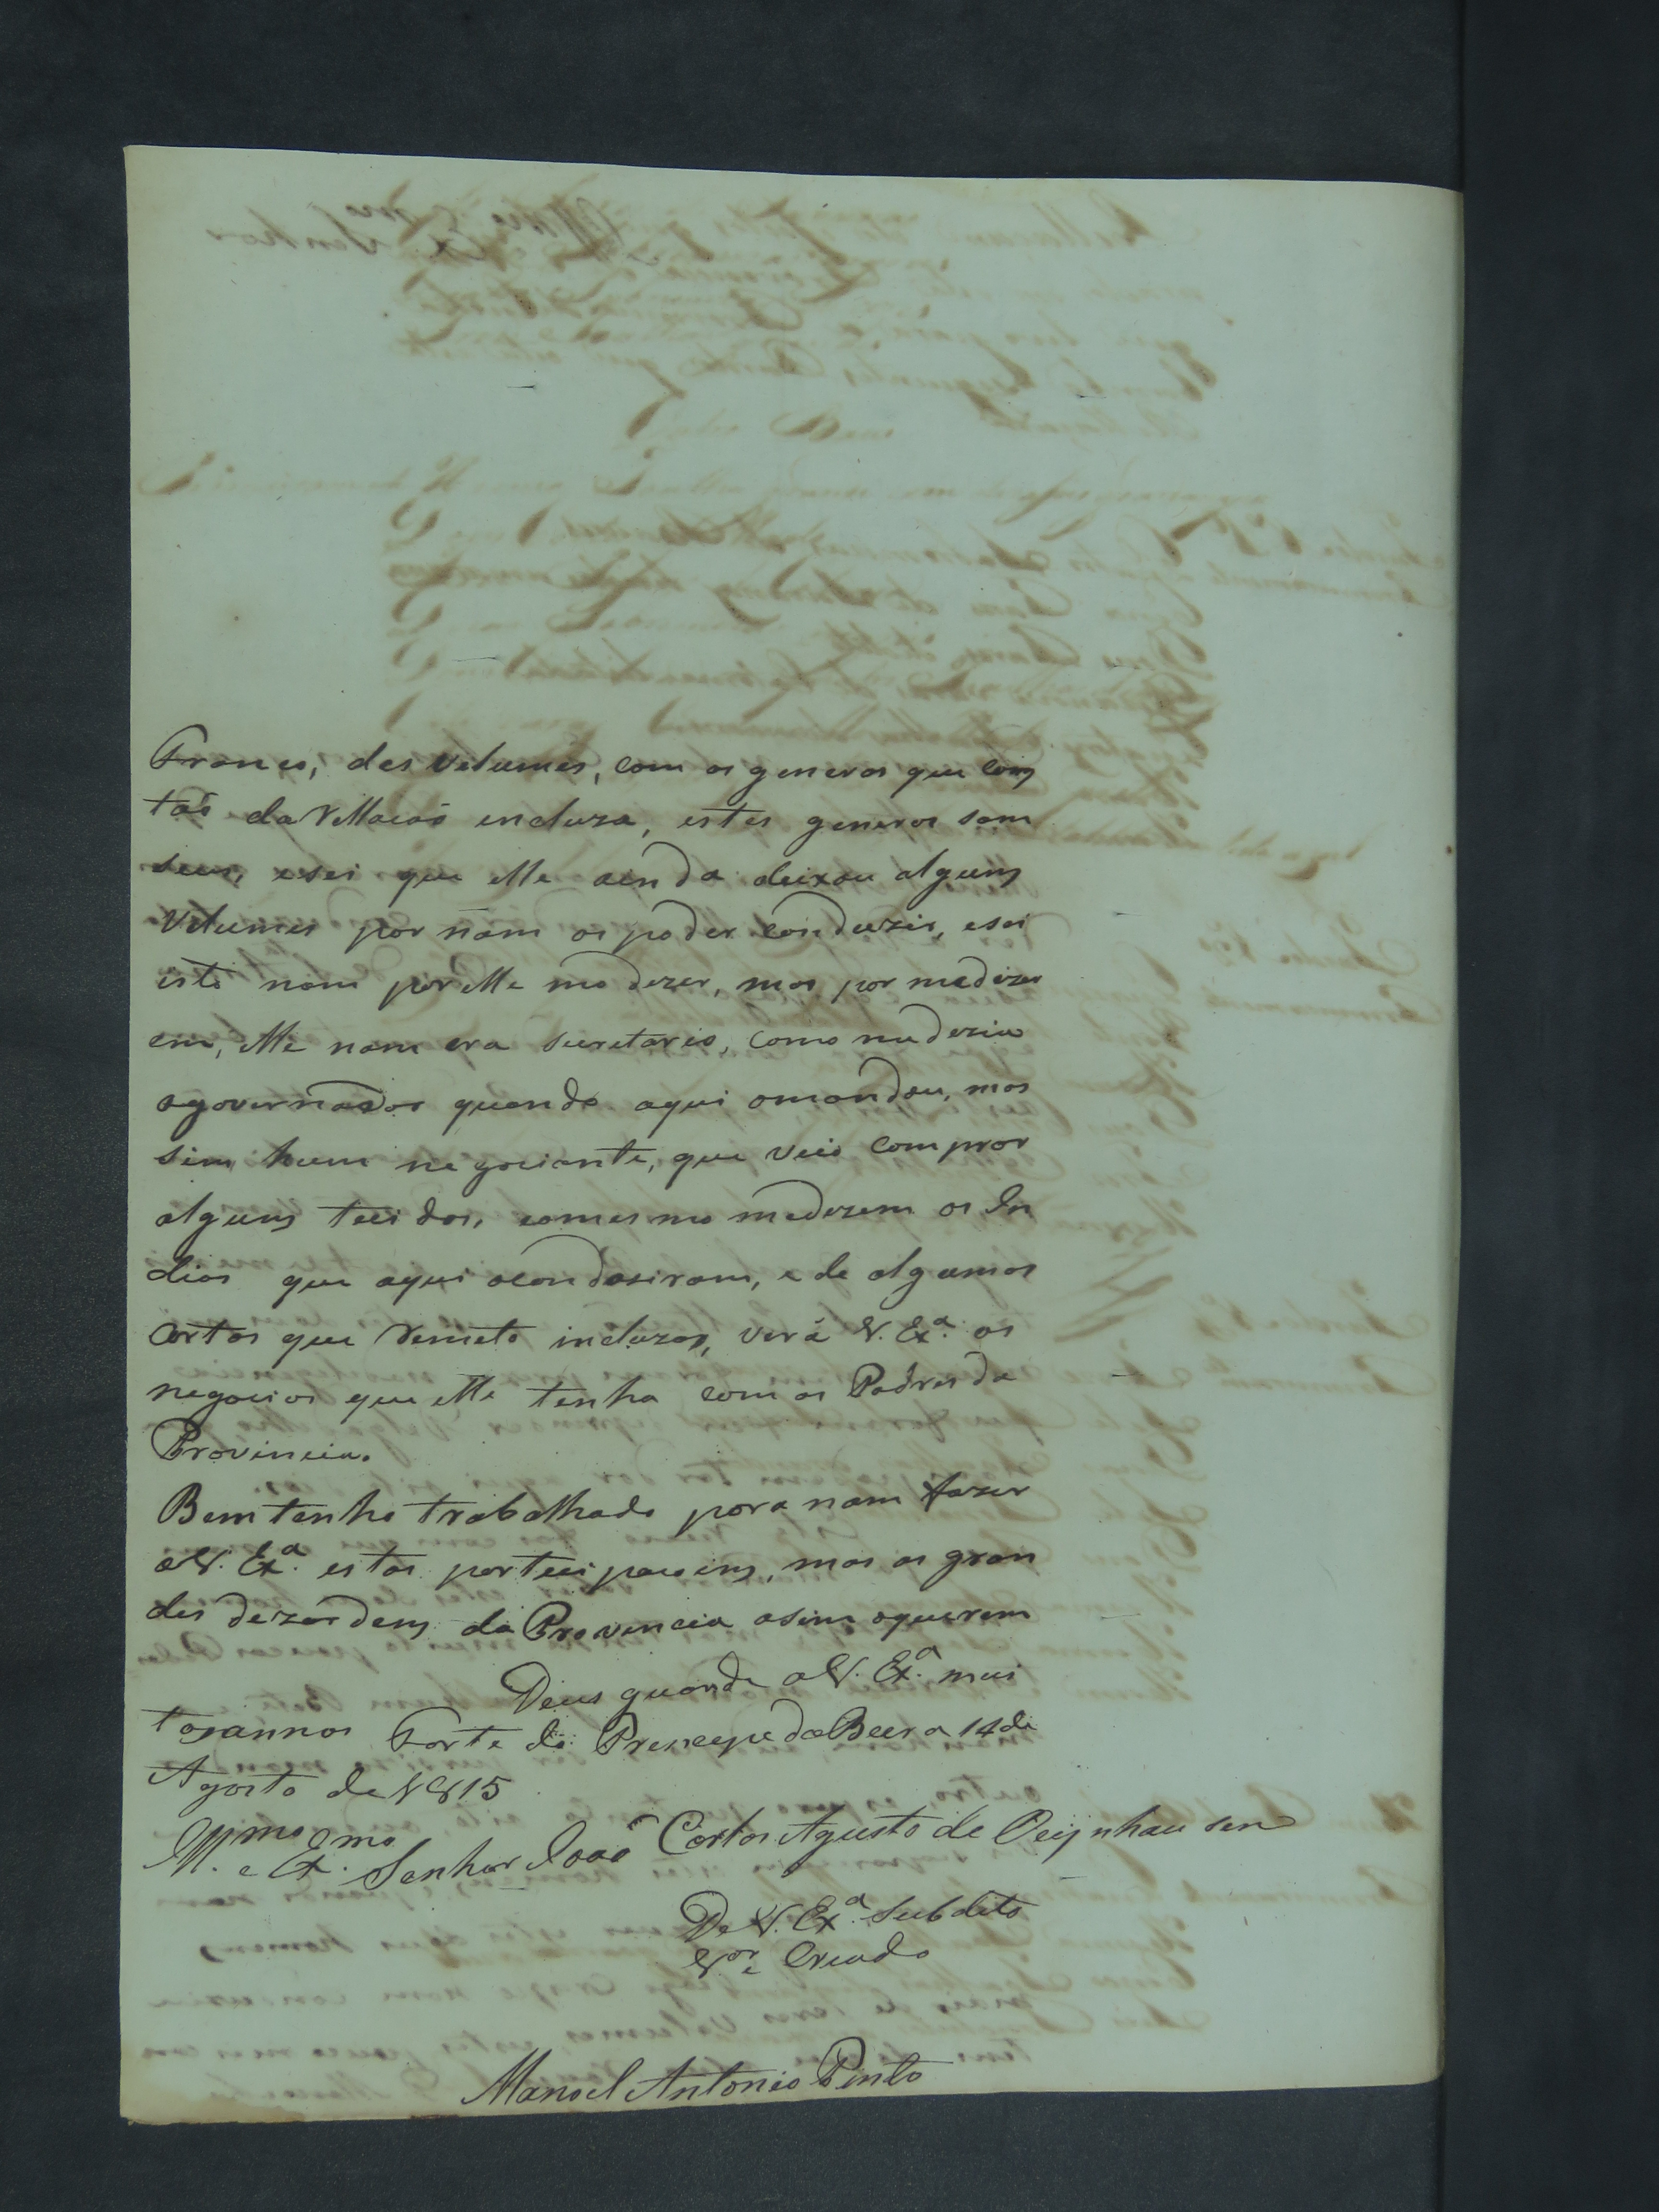 Franco, des volumes, com os generos que cons
taó da rellacaó encluza, estes generos sam
seus, e sei que elle aenda deixou alguns
volumes por nam os poder conduzir, e sei
isto nam por elle mo dezer, mas por me dizer
em, elle nam era secretario, como me dezia
o governador quando aqui o mandou, mas
sim hum negociante, que veio comprar
alguns tecidos, como mesmo me dizem os In
dios que aqui o condusiram, e de algumas
cartas que remeto incluzas, verá V. Exª. os
negocios que elle tenha com os Padres da
Provincia.
Bem tenho trabalhado para nam fazer
a V. Exª. estas partecipacoins, mas as gran
des dezordens da Provincia asim o querem
Deus guarde a V. Exª. mui
tos annos Forte do Prencepe da Beira 14 de
Agosto de 1815
Illmo. e Exmo. Senhor Joaó Carlos Agusto de Oeijnhausen
De V. Exª. Subdito
Vor. e Criado
Manoel Antonio Pinto